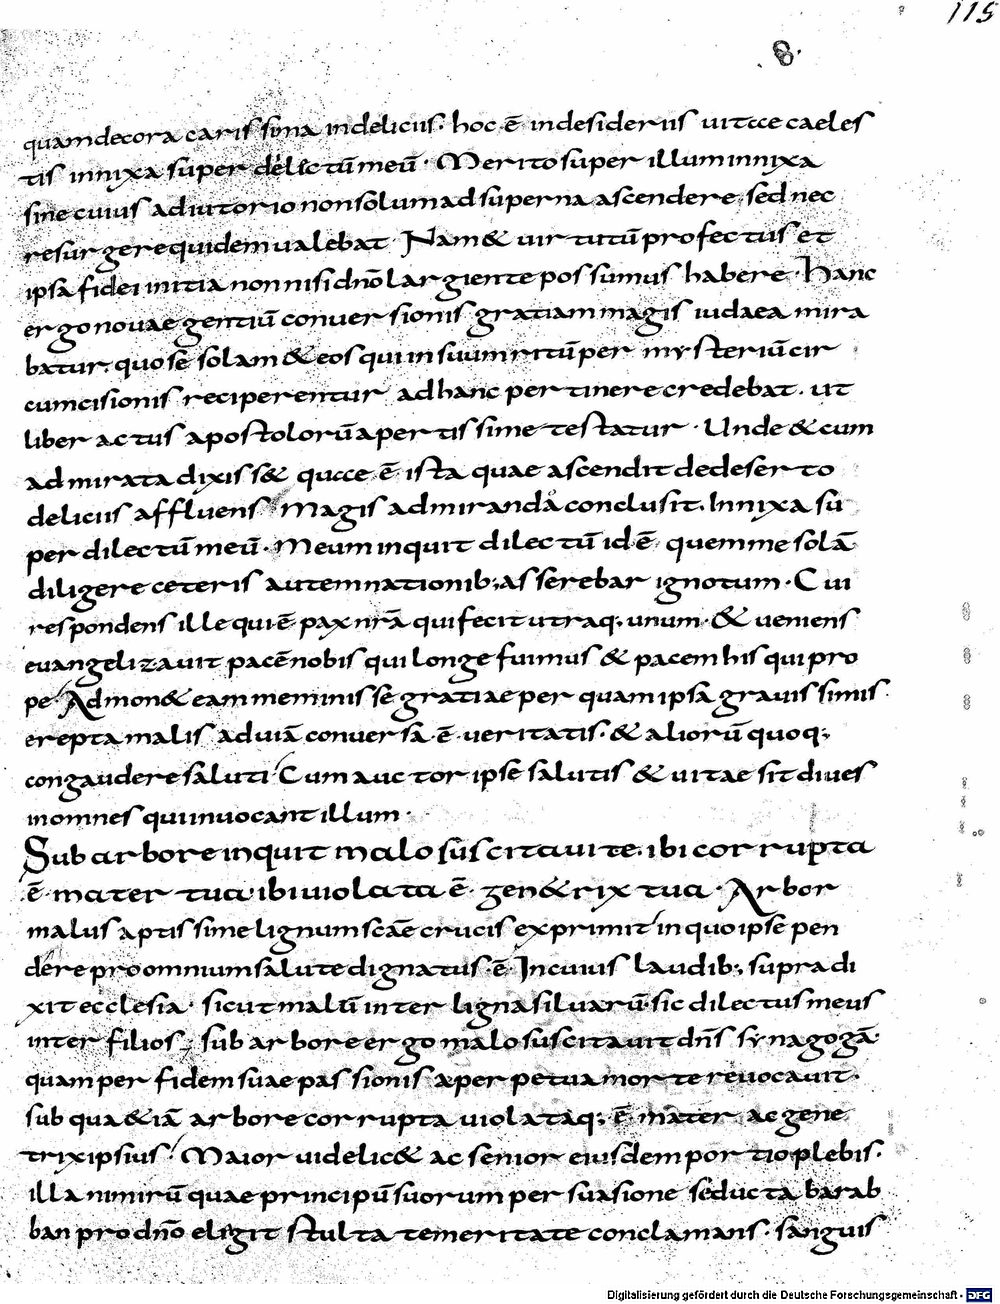 115
8.
quam decora carissima in deliciis. hoc ē in desideriis vitae caeles
tis innixa super dilectū meū. Merito super illum innixa
sine cuius adiutorio non solum ad superna ascendere sed nec
resurgere quidem ualebat. Nam & uirtutū profectus et
ipsa fidei initia non nisi dnō largiente possumus habere. Hanc
ergo nouae gentiū conuersionis gratiam magis iudaea mira
batur. quo sē solam & eos qui in suum ritū per mysteriū cir
cumcisionis reciperentur ad hanc pertinere credebat. ut
liber actus apostolorū apertissime testatur. Unde & cum
admirata dixiss& quae ē ista quae ascendit de deserto
deliciis affluens Magis admiranda conclusit. Innixa su
per dilectū meū. Meum inquit dilectū id ē quem me solā
diligere ceteris autem nationib; asserebar ignotum. Cui
respondens ille qui ē pax nrā qui fecit utraq; unum. & ueniens
euangelizauit pacē nobis qui longe fuimus & pacem his qui pro
pe. Admon& eam meminisse gratiae per quam ipsa grauissimis
erepta malis ad uiā conuersa ē ueritatis. & aliorū quoq;
congaudere saluti. Cum auctor ipse salutis & uitae sit diues
in omnes qui inuocant illum.
Sub arbore inquit malo suscitaui te. ibi corrupta
ē mater tua ibi uiolata ē gen&rix tua. Arbor
malus aptissime lignum scāe crucis exprimit in quo ipse pen
dere pro omnium salute dignatus ē In cuius laudib; supra di
xit ecclesia. sicut malū inter ligna siluarū sic dilectus meus
inter filios, sub arbore ergo malo suscitauit dnś synagogā.
quam per fidem suae passionis a perpetua morte reuocauit.
sub qua &iā arbore corrupta uiolataq; ē mater ac gene
trix ipsius. Maior uidelic& ac senior eiusdem portio plebis.
illa nimirū quae principū suorum persuasione seducta barab
ban pro dnō elegit stulta temeritate conclamans. sanguis
Digitalisierung gefördert durch die Deutsche Forschungsgemeinschaft - DFG